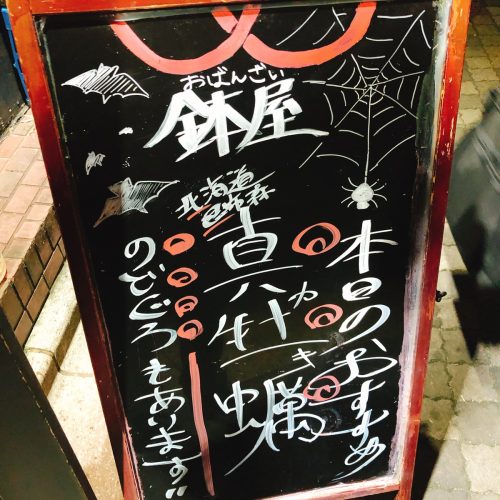 おばんざい
鉢屋
本日のおすすめ
北海道
昆布森
真牡蠣
カキ
のどぐろもあります!!